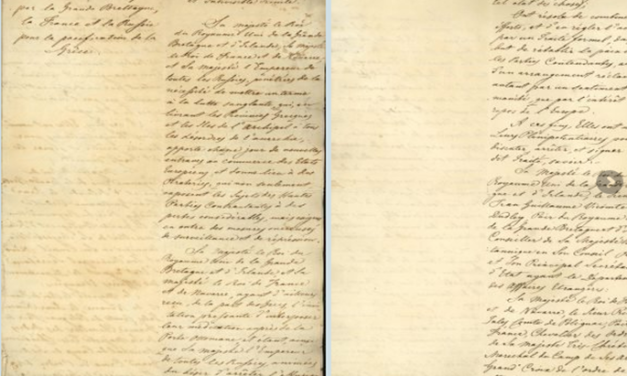 par la Grande Bretagne,
la France et la Russie
pour la pacification de la
Grèce.
Sa majesté le Roi
du Royaume Uni de la Grande
Bretagne et d'Irlande, Sa majesté
le Roi de France et de Navarre,
et Sa Majesté l'Empereur de
toutes les Russies, pénétrés de la
nécessité de mettre un terme
à la lutte sanglante qui, en
livrant les Provinces Grecques
et les Iles de l'Archipel à tous
les désordres de l'anarchie,
apporte chaque jour de nouvelles
entraves au commerce des Etats
Européens, et donne lieu à des
Pirateries, qui non seulement
exposent les Sujets des Hautes
Parties Contractantes à des
pertes considérables, mais exigent
en outre des mesures onéreuses
de surveillance et de répression.
Sa Majesté le Roi du
Royaume Uni de la Grande
Bretagne et d'Irlande, et Sa
Majesté le Roi de France
et de Navarre, ayant d'ailleurs
reçu, de la part des Grecs, l'invi-
tation pressante d'interposer
leur médiation auprès de la
Porte Ottomane, et étant, ainsi
que Sa Majesté l'Empereur
de toutes les Russies, animés
du désir d'arrêter l'effusion
tel état de choses,
Ont résolu de combiner
efforts, et d'en régler l'
par un Traité formel, dans
but de rétablir la paix
les Parties Contendantes, au
d'un arrangement réclamé
autant par un sentiment
manité, que par l'intérêt
repos de l'Europe.
A ces fins, Elles ont
Leurs Plénipotentiaires, pour
discuter, arrêter, et signer
dit Traité, savoir:
Sa Majesté le
Royaume Uni de la
gne et d'Irlande, le
Jean Guillaume Vicomte
Dudley, Pair du Royaume
de la Grande Bretagne et d'
Conseiller de Sa Majesté
tannique en Son Conseil
et Son Principal Secrétaire
d'Etat ayant le Département
des Affaires Etrangères;
Sa Majesté le Roi de
et de Navarre, le
Jules Comte de Polignac, Pair
France, Chevalier des Ordres
de Sa Majesté Très-Chrétienne
Maréchal de Camp de Ses
Grand' Croix de l'ordre de